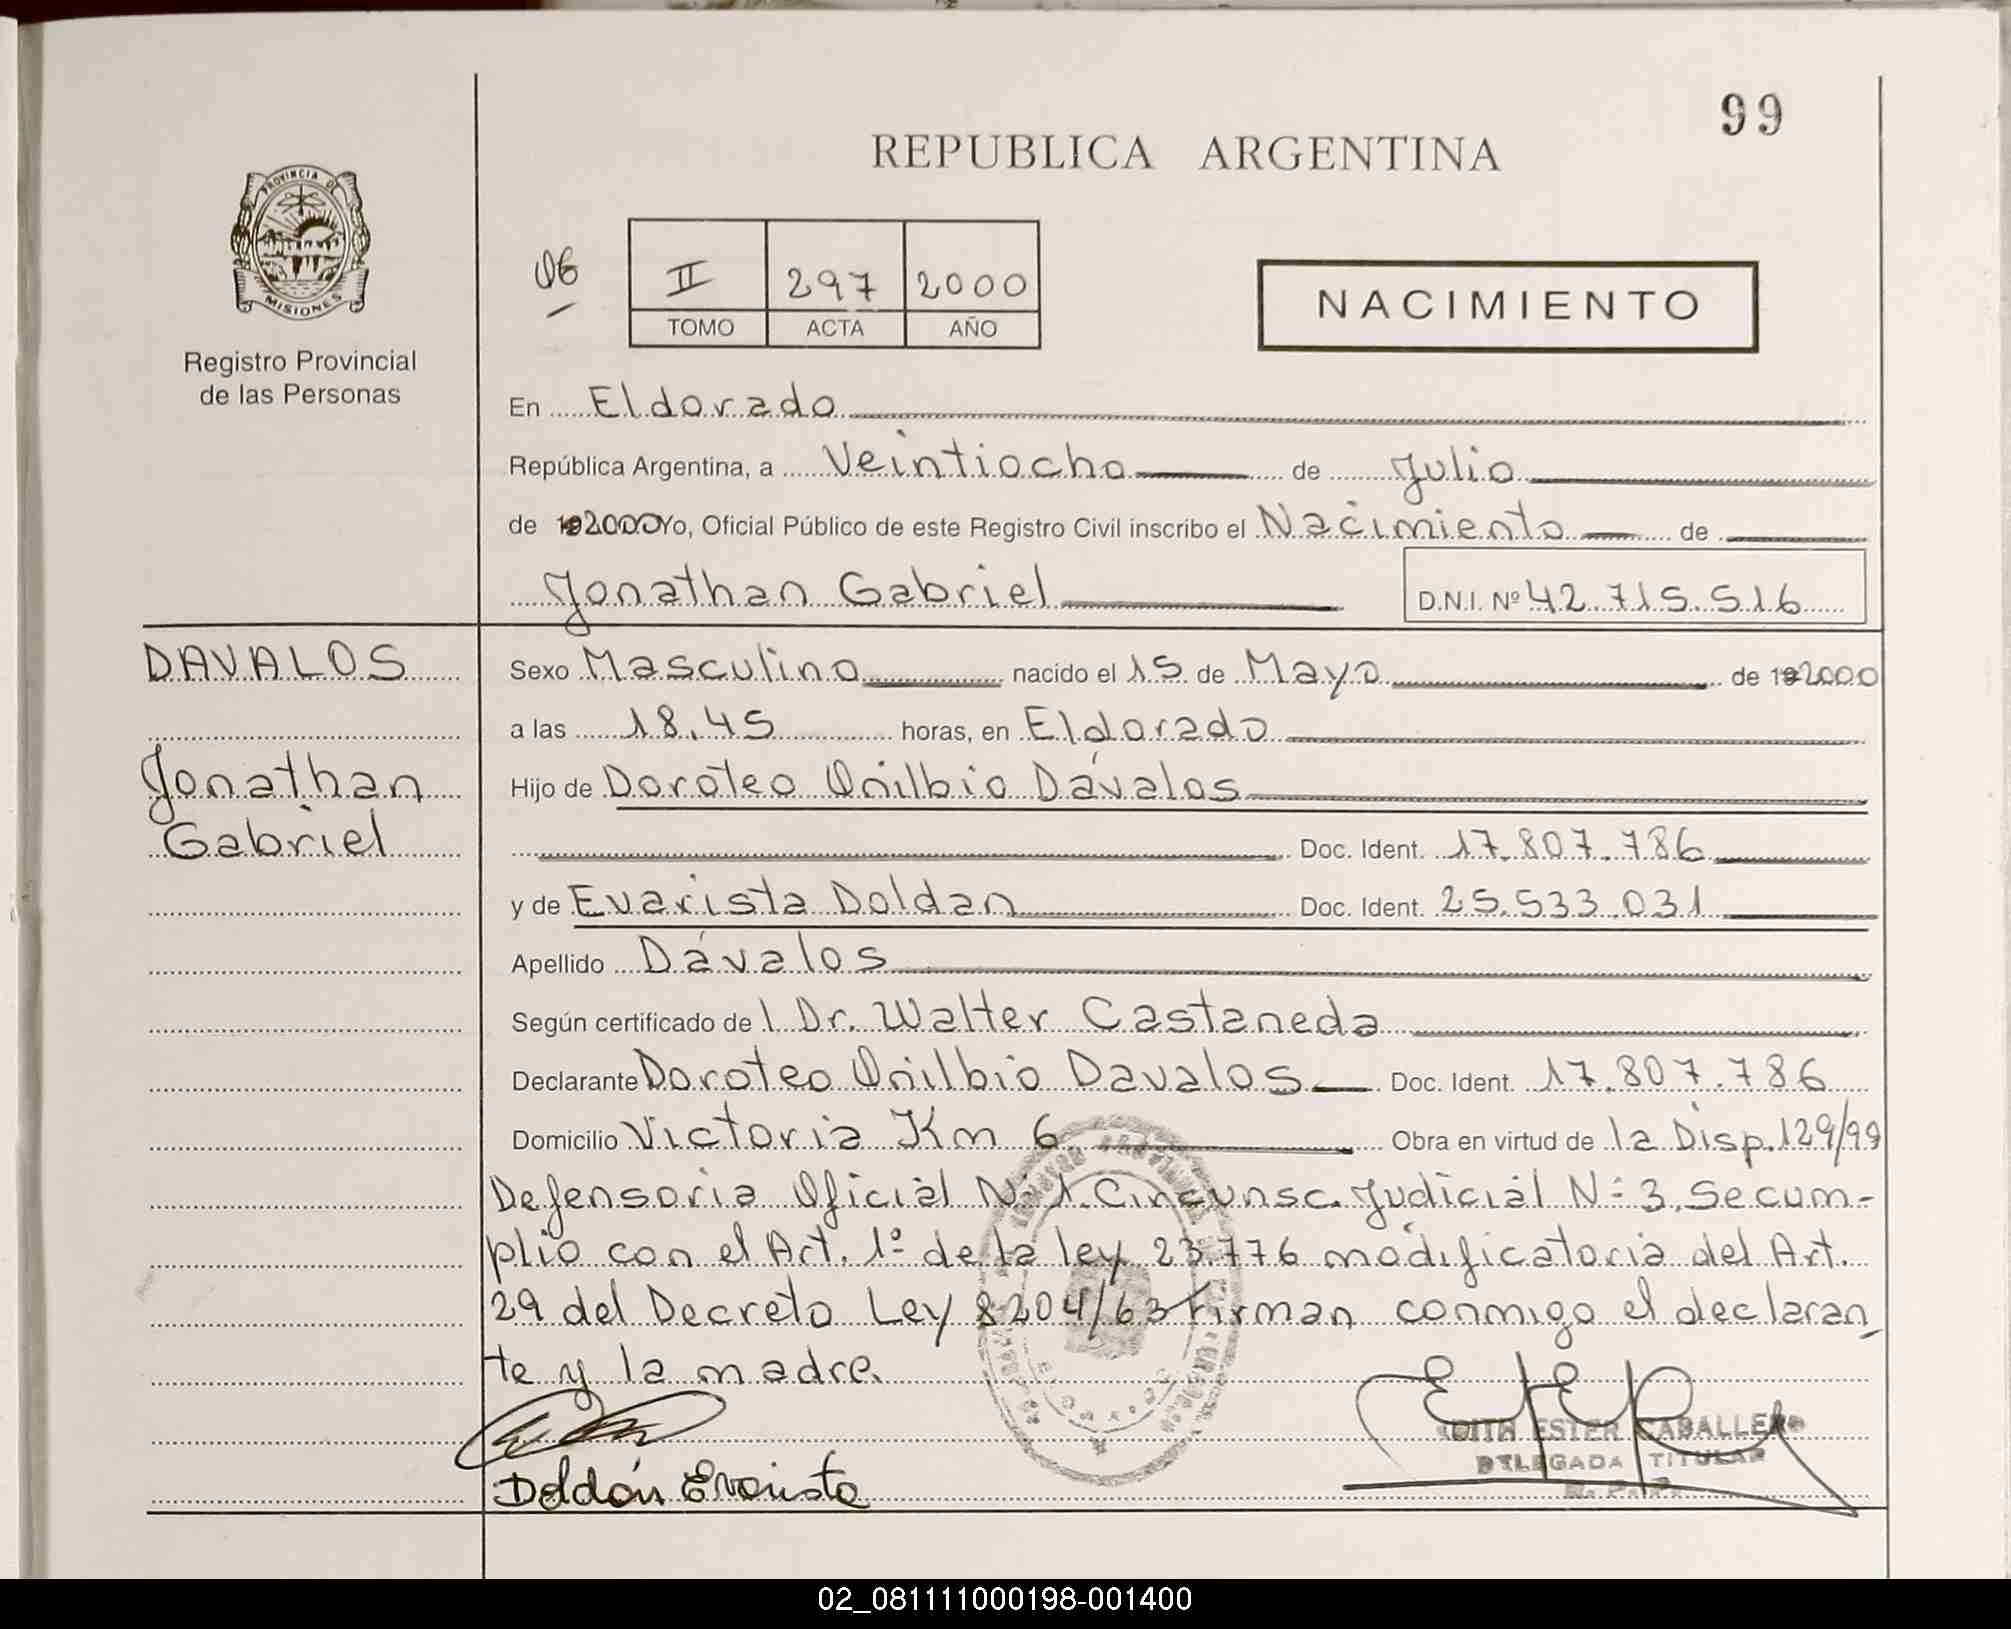 99
REPUBLICA ARGENTINA
PROVINCIA DE
MISIONES
Registro Provincial
de las Personas
06
II 297 2000
TOMO ACTA AÑO
NACIMIENTO
En Eldorado
República Argentina, a Veintiocho de Julio
de 192000 Yo, Oficial Público de este Registro Civil inscribo el Nacimiento de
Jonathan Gabriel D.N.I. Nº 42.715.516
DAVALOS
Jonathan
Gabriel
Sexo Masculino nacido el 15 de Mayo de 192000
a las 18.45 horas, en Eldorado
Hijo de Doroteo Onilbio Dávalos
Doc. Ident. 17.807.786
y de Evarista Doldan Doc. Ident. 25.533.031
Apellido Dávalos
Según certificado de l Dr. Walter Castaneda
Declarante Doroteo Onilbio Davalos Doc. Ident. 17.807.786
Domicilio Victoria Km 6 Obra en virtud de la Disp. 129/99
Defensoria Oficial Nº 1. Circunsc. Judicial Nº 3. Se cum-
plio con el Art. 1º de la ley 23.776 modificatoria del Art.
29 del Decreto Ley 8204/63 Firman conmigo el declaran
te y la madre.
Doldán Evarista
EDITH ESTER CABALLERO
DELEGADA TITULAR
R. P. P.
02_081111000198-001400